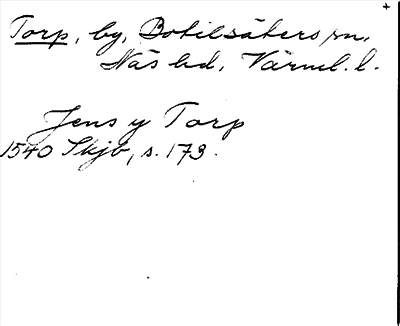 Torp, by, Botilsäters sn,
Näs hd, Värml. l.
Jens y Torp
1540 Skjb, s. 173.